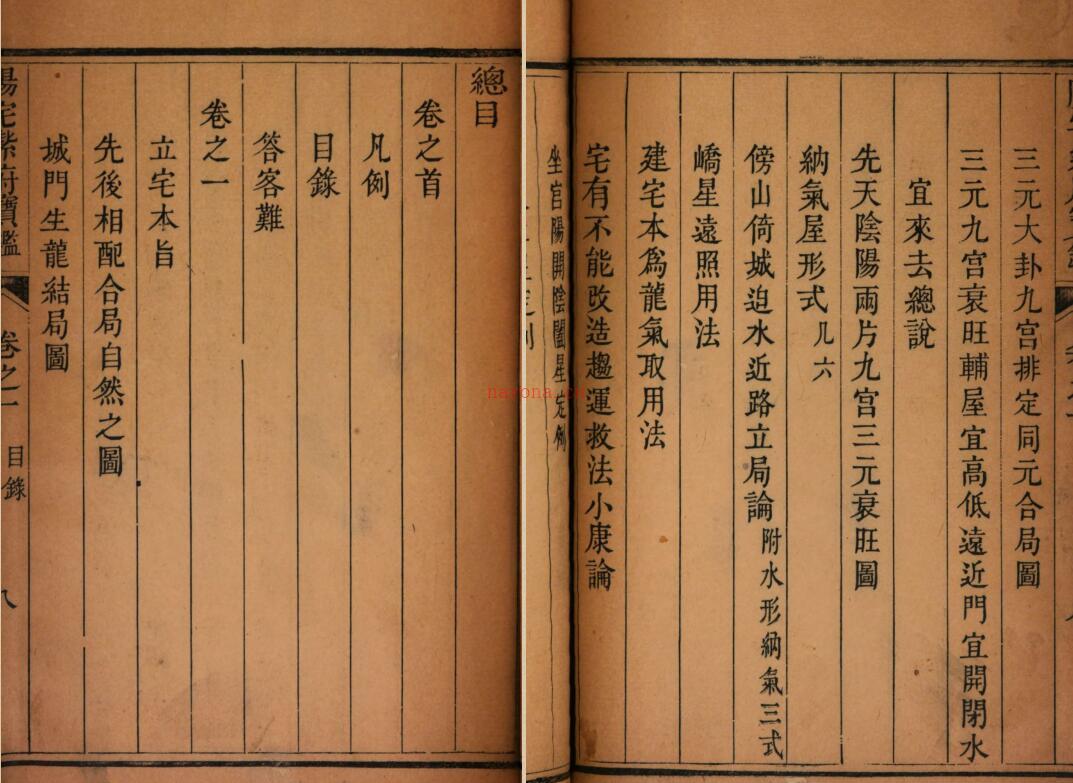 總目
卷之首
凡例
目錄
答客難
卷之一
立宅本旨
先後相配合局自然之圖
城門生龍結局圖
陽宅紫府寶鑑 卷之一 目錄 八
三元大卦九宮排定同元合局圖
三元九宮衰旺輔屋宜高低遠近門宜開閉水
宜來去總說
先天陰陽兩片九宮三元衰旺圖
納氣屋形式凡六
傍山倚城迫水近路立局論附水形納氣三式
嶠星遠照用法
建宅本為龍氣取用法
宅有不能改造趨運救法小康論
坐宮陽開陰闔星定例